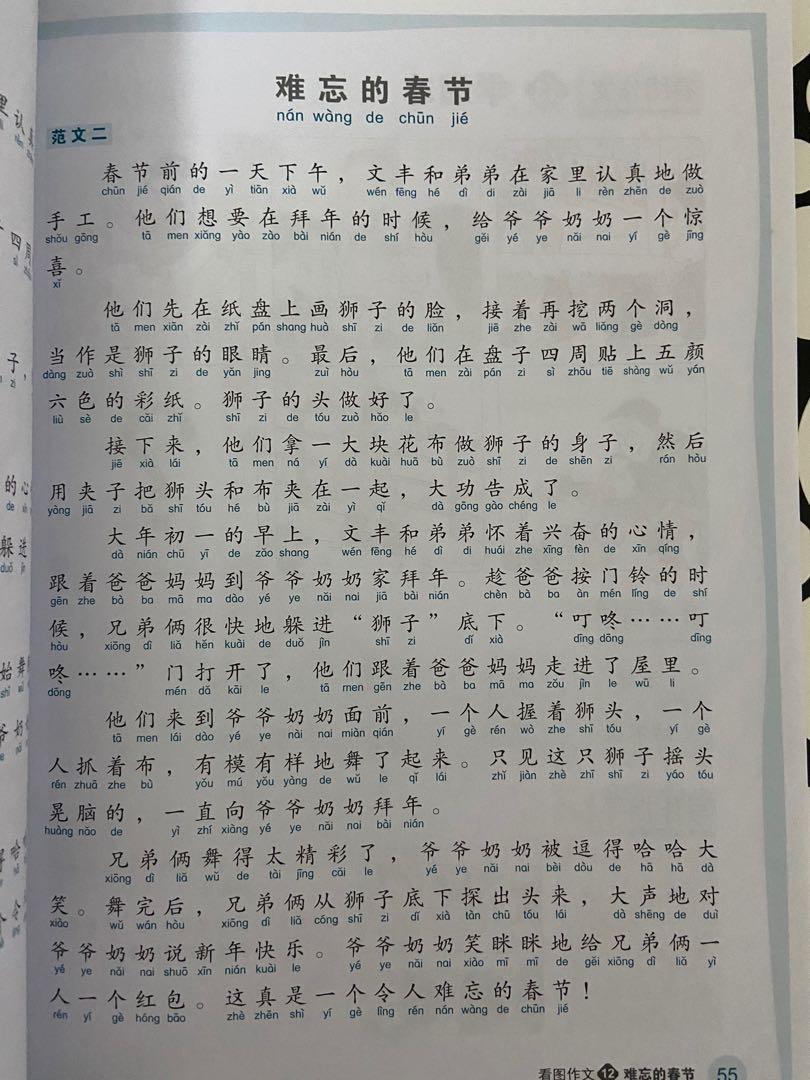 难忘的春节
nán wàng de chūn jié
范文二
春节前的一天下午，文丰和弟弟在家里认真地做
chūn jié qián de yì tiān xià wǔ wén fēng hé dì di zài jiā li rèn zhēn de zuò
手工。他们想要在拜年的时候，给爷爷奶奶一个惊
shǒu gōng tā men xiǎng yào zào bài nián de shí hòu gěi yé ye nǎi nai yí gè jīng
喜。
xǐ
他们先在纸盘上画狮子的脸，接着再挖两个洞，
tā men xiān zài zhǐ pán shang huà shī zi de liǎn jiē zhe zài wā liǎng gè dòng
当作是狮子的眼睛。最后，他们在盘子四周贴上五颜
dàng zuò shì shī zi de yǎn jing zuì hòu tā men zài pán zi sì zhōu tiē shàng wǔ yán
六色的彩纸。狮子的头做好了。
liù sè de cǎi zhǐ shī zi de tóu zuò hǎo le
接下来，他们拿一大块花布做狮子的身子，然后
jiē xià lái tā men ná yí dà kuài huā bù zuò shī zi de shēn zi rán hòu
用夹子把狮头和布夹在一起，大功告成了。
yòng jiā zi bǎ shī tóu hé bù jiā zài yì qǐ dà gōng gào chéng le
大年初一的早上，文丰和弟弟怀着兴奋的心情，
dà nián chū yī de zǎo shang wén fēng hé dì di huái zhe xīng fèn de xīn qíng
跟着爸爸妈妈到爷爷奶奶家拜年。趁爸爸按门铃的时
gēn zhe bà ba mā ma dào yé ye nǎi nai jiā bài nián chèn bà ba àn mén líng de shí
候，兄弟俩很快地躲进“狮子”底下。“叮咚……叮
hòu xiōng dì liǎ hěn kuài de duǒ jìn shī zi dǐ xià dīng dōng dīng
咚……”门打开了，他们跟着爸爸妈妈走进了屋里。
dōng mén dǎ kāi le tā men gēn zhe bà ba mā ma zǒu jìn le wū li
他们来到爷爷奶奶面前，一个人握着狮头，一个
tā men lái dào yé ye nǎi nai miàn qián yí gè rén wò zhe shī tóu yí gè
人抓着布，有模有样地舞了起来。只见这只狮子摇头
rén zhuā zhe bù yǒu mú yǒu yàng de wǔ le qǐ lái zhǐ jiàn zhè zhī shī zi yáo tóu
晃脑的，一直向爷爷奶奶拜年。
huàng nǎo de yì zhí xiàng yé ye nǎi nai bài nián
兄弟俩舞得太精彩了，爷爷奶奶被逗得哈哈大
xiōng dì liǎ wǔ de tài jīng cǎi le yé ye nǎi nai bèi dòu de hā hā dà
笑。舞完后，兄弟俩从狮子底下探出头来，大声地对
xiào wǔ wán hòu xiōng dì liǎ cóng shī zi dǐ xià tàn chū tóu lái dà shēng de duì
爷爷奶奶说新年快乐。爷爷奶奶笑眯眯地给兄弟俩一
yé ye nǎi nai shuō xīn nián kuài le yé ye nǎi nai xiào mī mī de gěi xiōng dì liǎ yì
人一个红包。这真是一个令人难忘的春节！
rén yí gè hóng bāo zhè zhēn shì yí gè lìng rén nán wàng de chūn jié
看图作文12难忘的春节 55